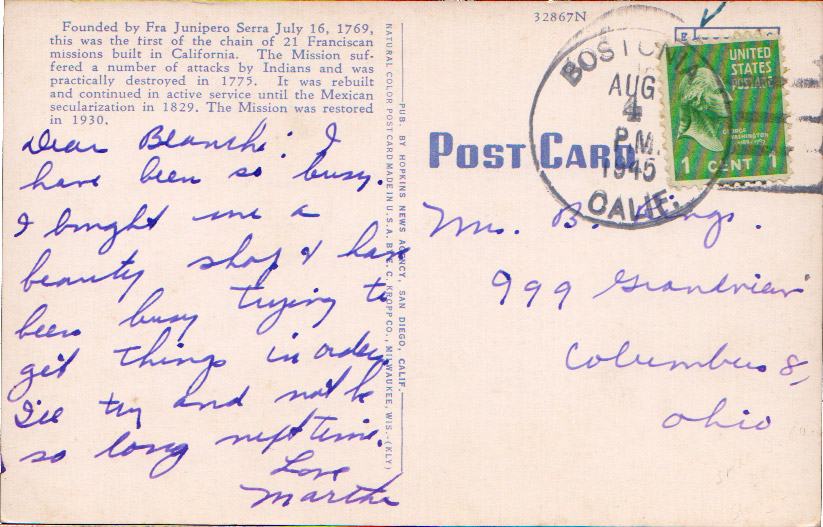 Founded by Fra Junipero Serra July 16, 1769,
this was the first of the chain of 21 Franciscan
missions built in California. The Mission suf-
fered a number of attacks by Indians and was
practically destroyed in 1775. It was rebuilt
and continued in active service until the Mexican
secularization in 1829. The Mission was restored
in 1930.
Dear Blanche: I
have been so busy.
I bought me a
beauty shop & have
been busy trying to
get things in order.
I'll try and not be
so long next time.
Love
Martha
NATURAL COLOR POST CARD MADE IN U.S.A. BY E. C. KROPP CO., MILWAUKEE, WIS.-(KLY)
PUB. BY HOPKINS NEWS AGENCY, SAN DIEGO, CALIF.
32867N
POST CARD
BOSTONIA
AUG
4
P.M.
1945
CALIF.
UNITED
STATES
POSTAGE
GEORGE
WASHINGTON
1789-1797
1 CENT 1
Mrs. B. Kings.
999 Grandview
Columbus 8,
Ohio